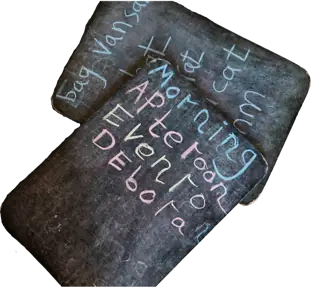 bag van sa
at cat
Morning
Apteroon
Evenro
DEbora